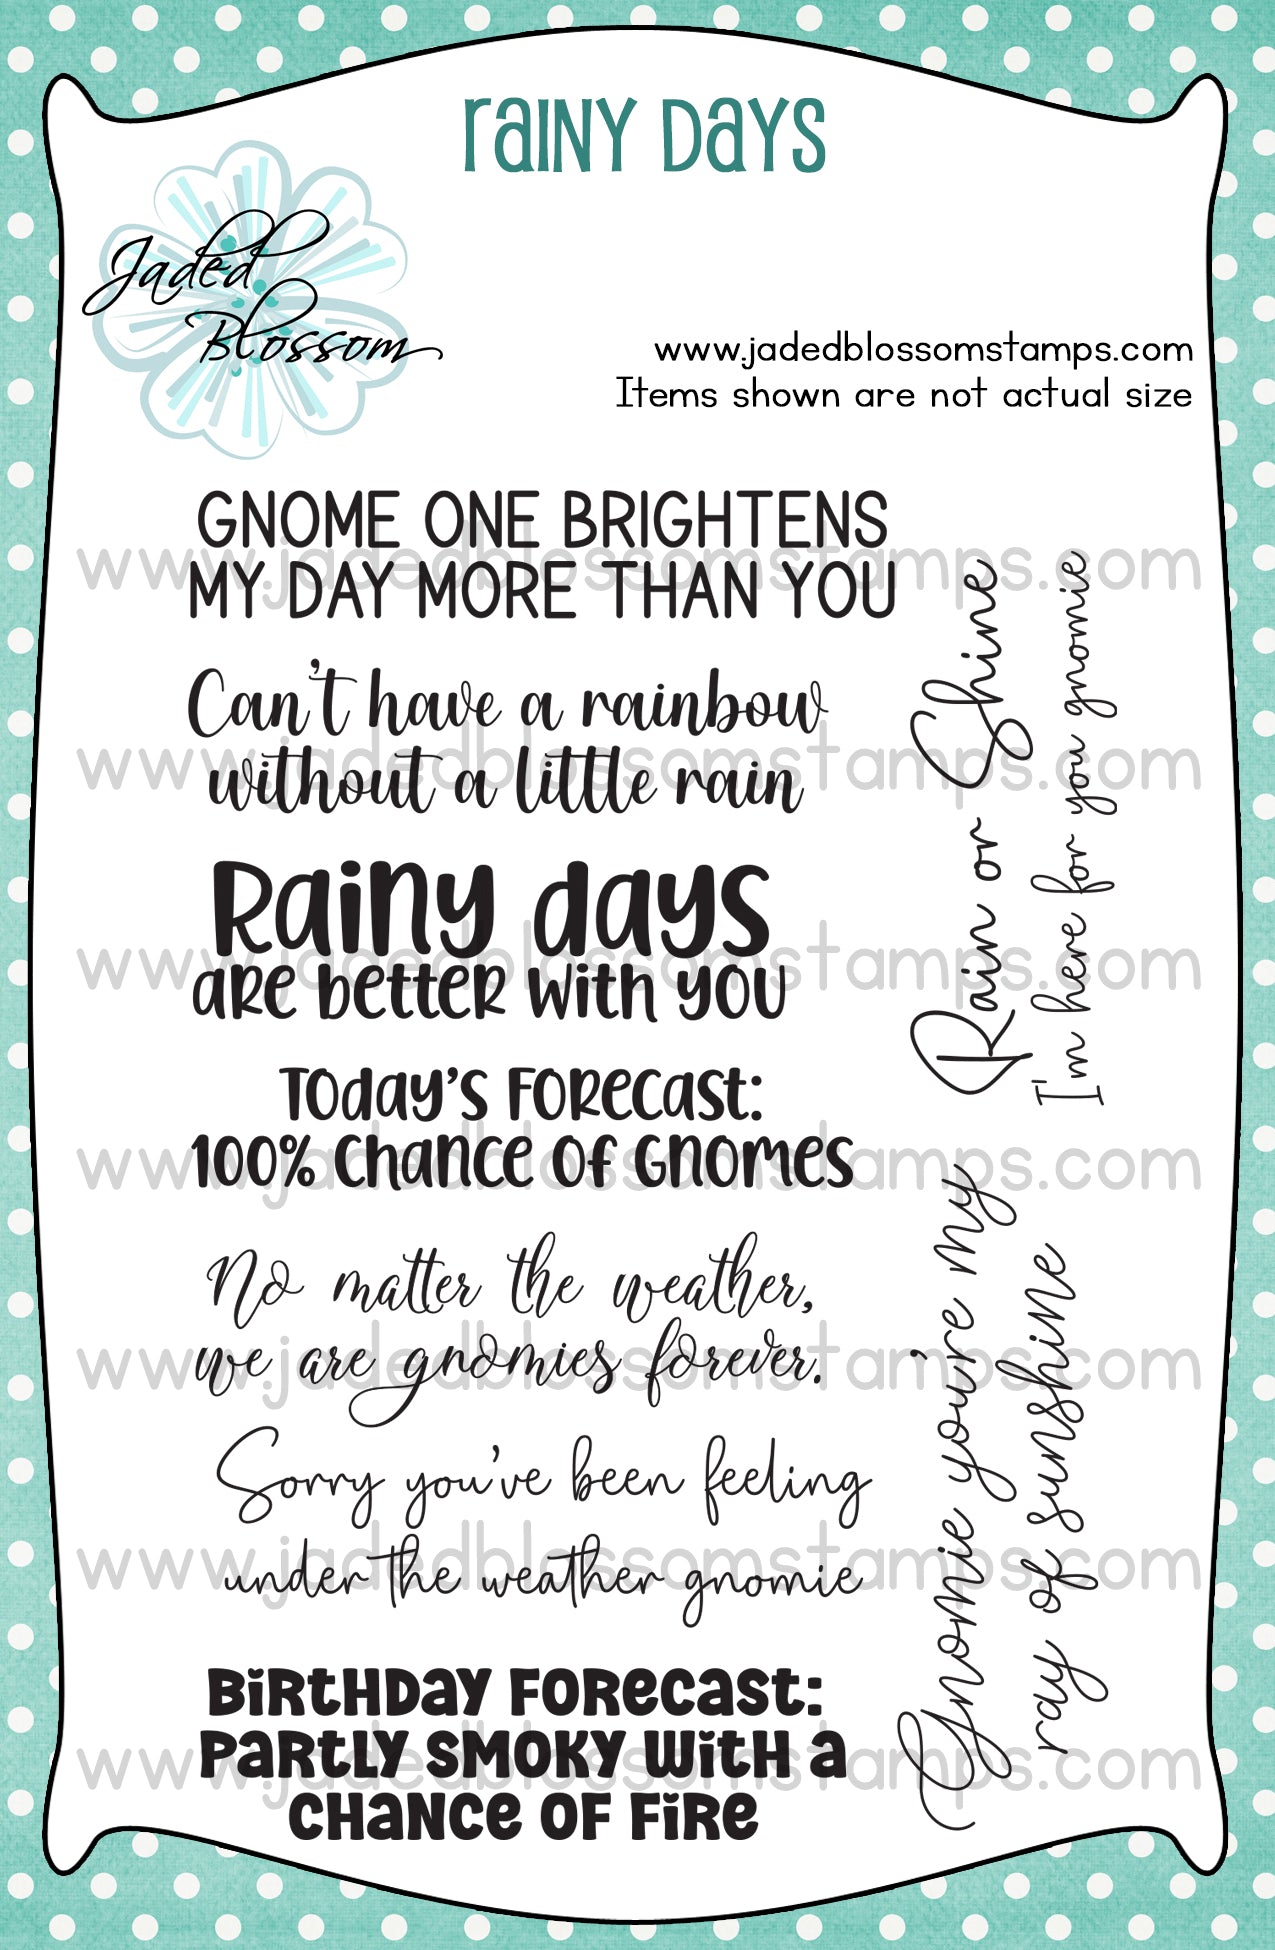 Rainy Days
Jaded
Blossom
www.jadedblossomstamps.com
Items shown are not actual size
GNOME ONE BRIGHTENS
MY DAY MORE THAN YOU
www.jadedblossomstamps.com
Can't have a rainbow
without a little rain
www.jadedblossomstamps.com
Rainy days
are better with you
www.jadedblossomstamps.com
Today's Forecast:
100% Chance of Gnomes
www.jadedblossomstamps.com
No matter the weather,
we are gnomies forever.
www.jadedblossomstamps.com
Sorry you've been feeling
under the weather gnomie
www.jadedblossomstamps.com
Birthday Forecast:
Partly Smoky with a
Chance of Fire
www.jadedblossomstamps.com
Rain or Shine
I'm here for you gnomie
Gnomie you're my
ray of sunshine